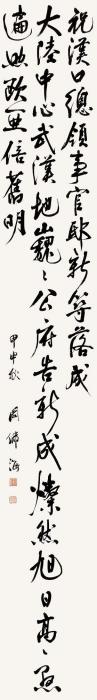 祝漢口總領事官邸新筑落成
大陸中心武漢地巍々公府告新成燦然旭日高々懸
遍照歐亜倍舊明
甲申秋